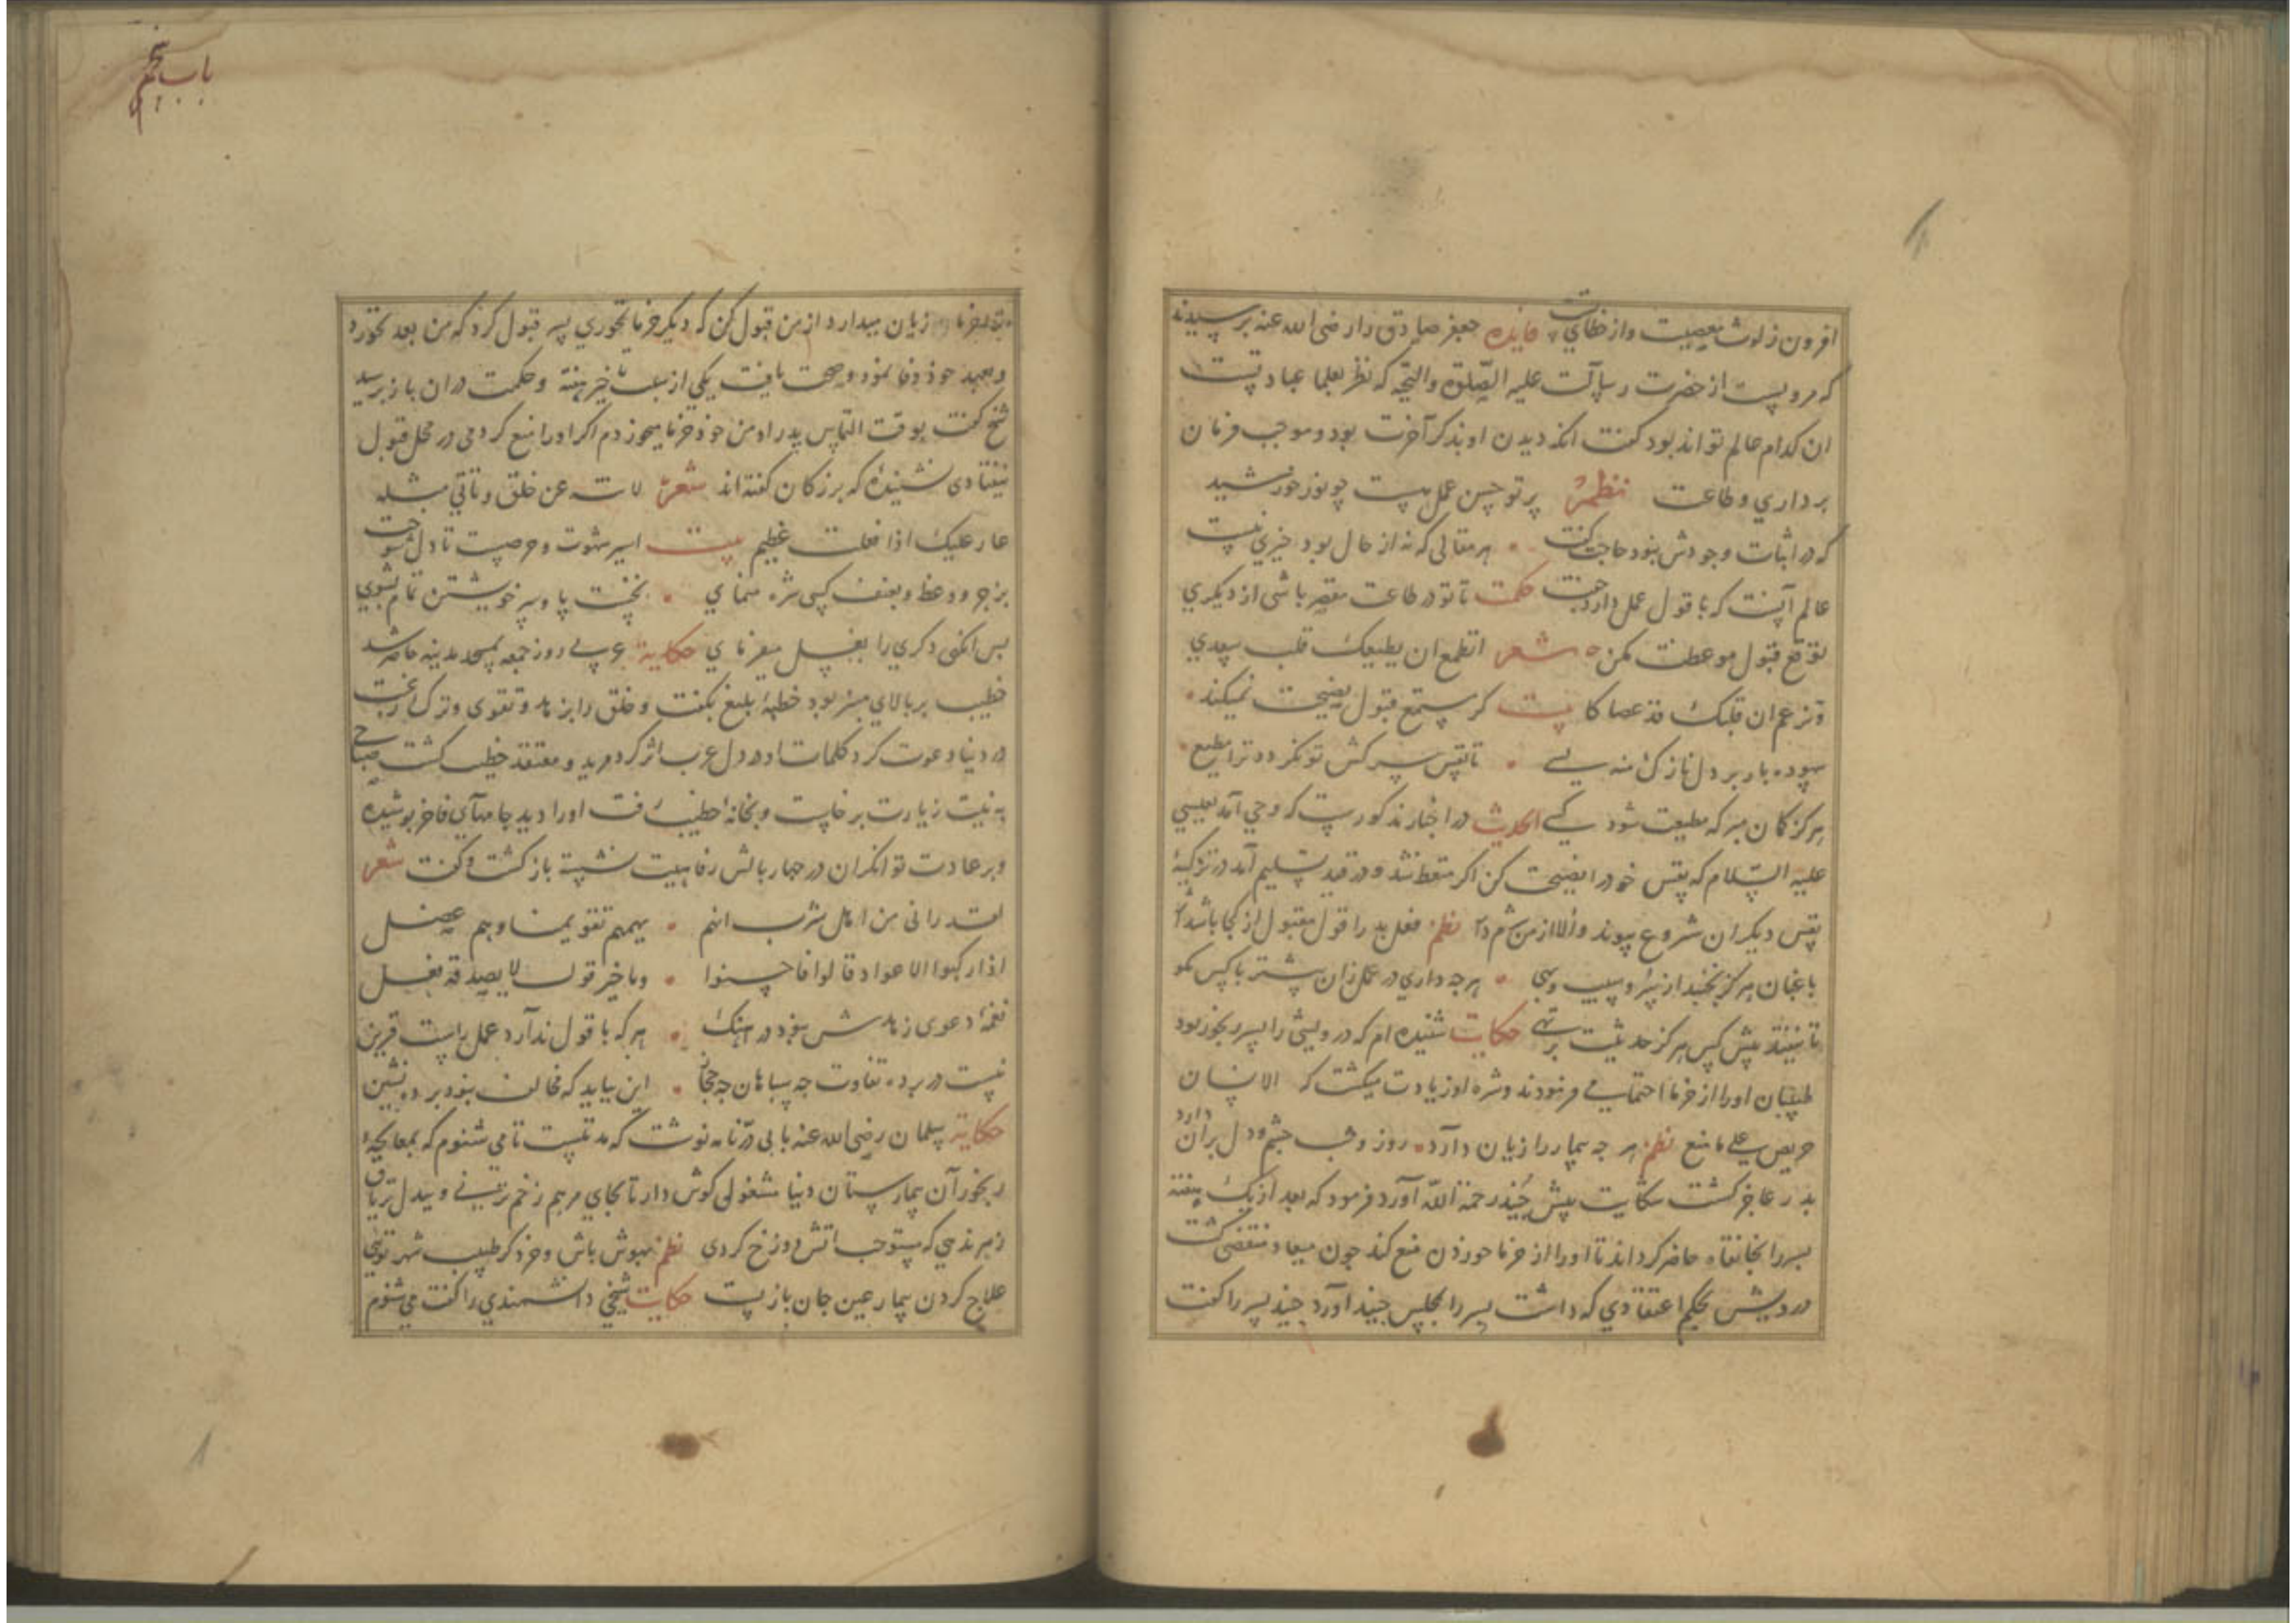 افزون زلوث معصیت و از خطای فایده جعفر صادق را رضی الله عنه پرسیدند
که مرویست از حضرت رسالت علیه الصلوة والتحیه که نظر بعلما عبادتست
ان کدام عالم تواند بود کفت انکه دیدن او بذکر آخرت بود و موجب فرمان
برداری و طاعت نظم پرتو حسن عمل هست چو نور خورشید
که در اثبات وجودش نبود حاجت کفت هر مقالی که نه از حال بود چیزی نیست
عالم آنست که با قول عمل دارد جفت حکمت تا تو در طاعت مقصر باشی از دیکری
توقع قبول موعظت مکن شعر اتطمع ان یطیعک قلب سعدی
و تزعم ان قلبک قد عصاکا بیت کر مستمع قبول نصیحت نمیکند
بیهوده بار بر دل نازک منه بسے تا نفس سرکش تو نکردد ترا مطیع
هرکز کمان مبر که مطیعت شود کسے الحدیث در اخبار مذکورست که وحی آمد بعیسی
علیه السلام که نفس خود را نصیحت کن اکر متعظ شد و در قید تسلیم آمد در تزکیه
نفس دیکران شروع پیوند والا از من شرم دار نظم فعل بد را قول مقبول از کجا باشد
باغبان هرکز نچیند از سپیدار و بید بهی هرجه داری در عمل زان پیشتر با کس مکو
تا نیفتد پیش کس هرکز حدیثت بر تهی حکایت شنیده ام که درویشی را پسر رنجور بود
طبیبان او را از خرما احتما می فرمودند و شره او زیادت میکشت که الانسان
حریص علی ما منع نظم هر جه بیمار را زیان دارد روز و شب چشم و دل بران دارد
پدر عاجز کشت شکایت پیش جنید رحمة الله آورد فرمود که بعد از یک هفته
پسر را بخانقاه حاضر کرداند تا او را از خرما خوردن منع کند جون میعاد منقضی کشت
درویش بحکم اعتقادی که داشت پسر را بمجلس جنید آورد جنید پسر را کفت
خرما زیان میدارد از من قبول کن که دیکر خرما نخوری پسر قبول کرد که من بعد نخورد
و بعهد خود وفا نمود و صحت یافت یکی از شیخ تاخیر هفته و حکمت دران باز پرسید
شیخ کفت بوقت التماس پدر او من خود خرما میخوردم اکر او را منع کردمی در محل قبول
نیفتادی نشنیدۀ که بزرکان کفته اند شعر لا تنه عن خلق و تاتی مثله
عار علیک اذا فعلت عظیم بیت اسیر شهوت و حرصیت تا دل شوخت
بزجر و وعظ و بعنف کسی شره منمای نخست پا و سر خویشتن تمام بشوی
پس انکهی دکری را بغسل میفرمای حکایة عربے روز جمعه بمسجد مدینه حاضر شد
خطیب بر بالای منبر بود خطبۀ بلیغ بکفت و خلق را بزهد و تقوی و ترک رغبت
در دنیا دعوت کرد کلمات او در دل عرب اثر کرد مرید و معتقد خطیب کشت صباحی
به نیت زیارت برخاست و بخانه خطیب رفت او را دید جامهای فاخر پوشیده
و بر عادت توانکران در جهار بالش رفاهیت نشسته باز کشت و کفت شعر
لقد رانی من اهل یثرب انهم یهمهم تقویمنا وهم عصل
اذا رکبوا الاعواد قالوا فاحسنوا وما خیر قول لا یصدقه فعل
نغمۀ دعوی زهدش نبود در اهنک هر که با قول ندارد عمل راست قرین
نیست در پرده تفاوت جه سپاهان جه حجاز این بباید که مخالف نبود پرده نشین
حکایة سلمان رضی الله عنه بابی درّ نامه نوشت که مدتیست تا می شنوم که بمعالجۀ
رنجوران بیمارستان دنیا مشغولی کوش دار تا بجای مرهم زخم نزنی و بیدل تریاق
زهر ندهی که مستوجب اتش دوزخ کردی نظم بهوش باش و خرد کر طبیب شهر توئی
علاج کردن بیمار عین جان بازیست حکایت شیخی دانشمندی را کفت می شنوم
باب پنجم